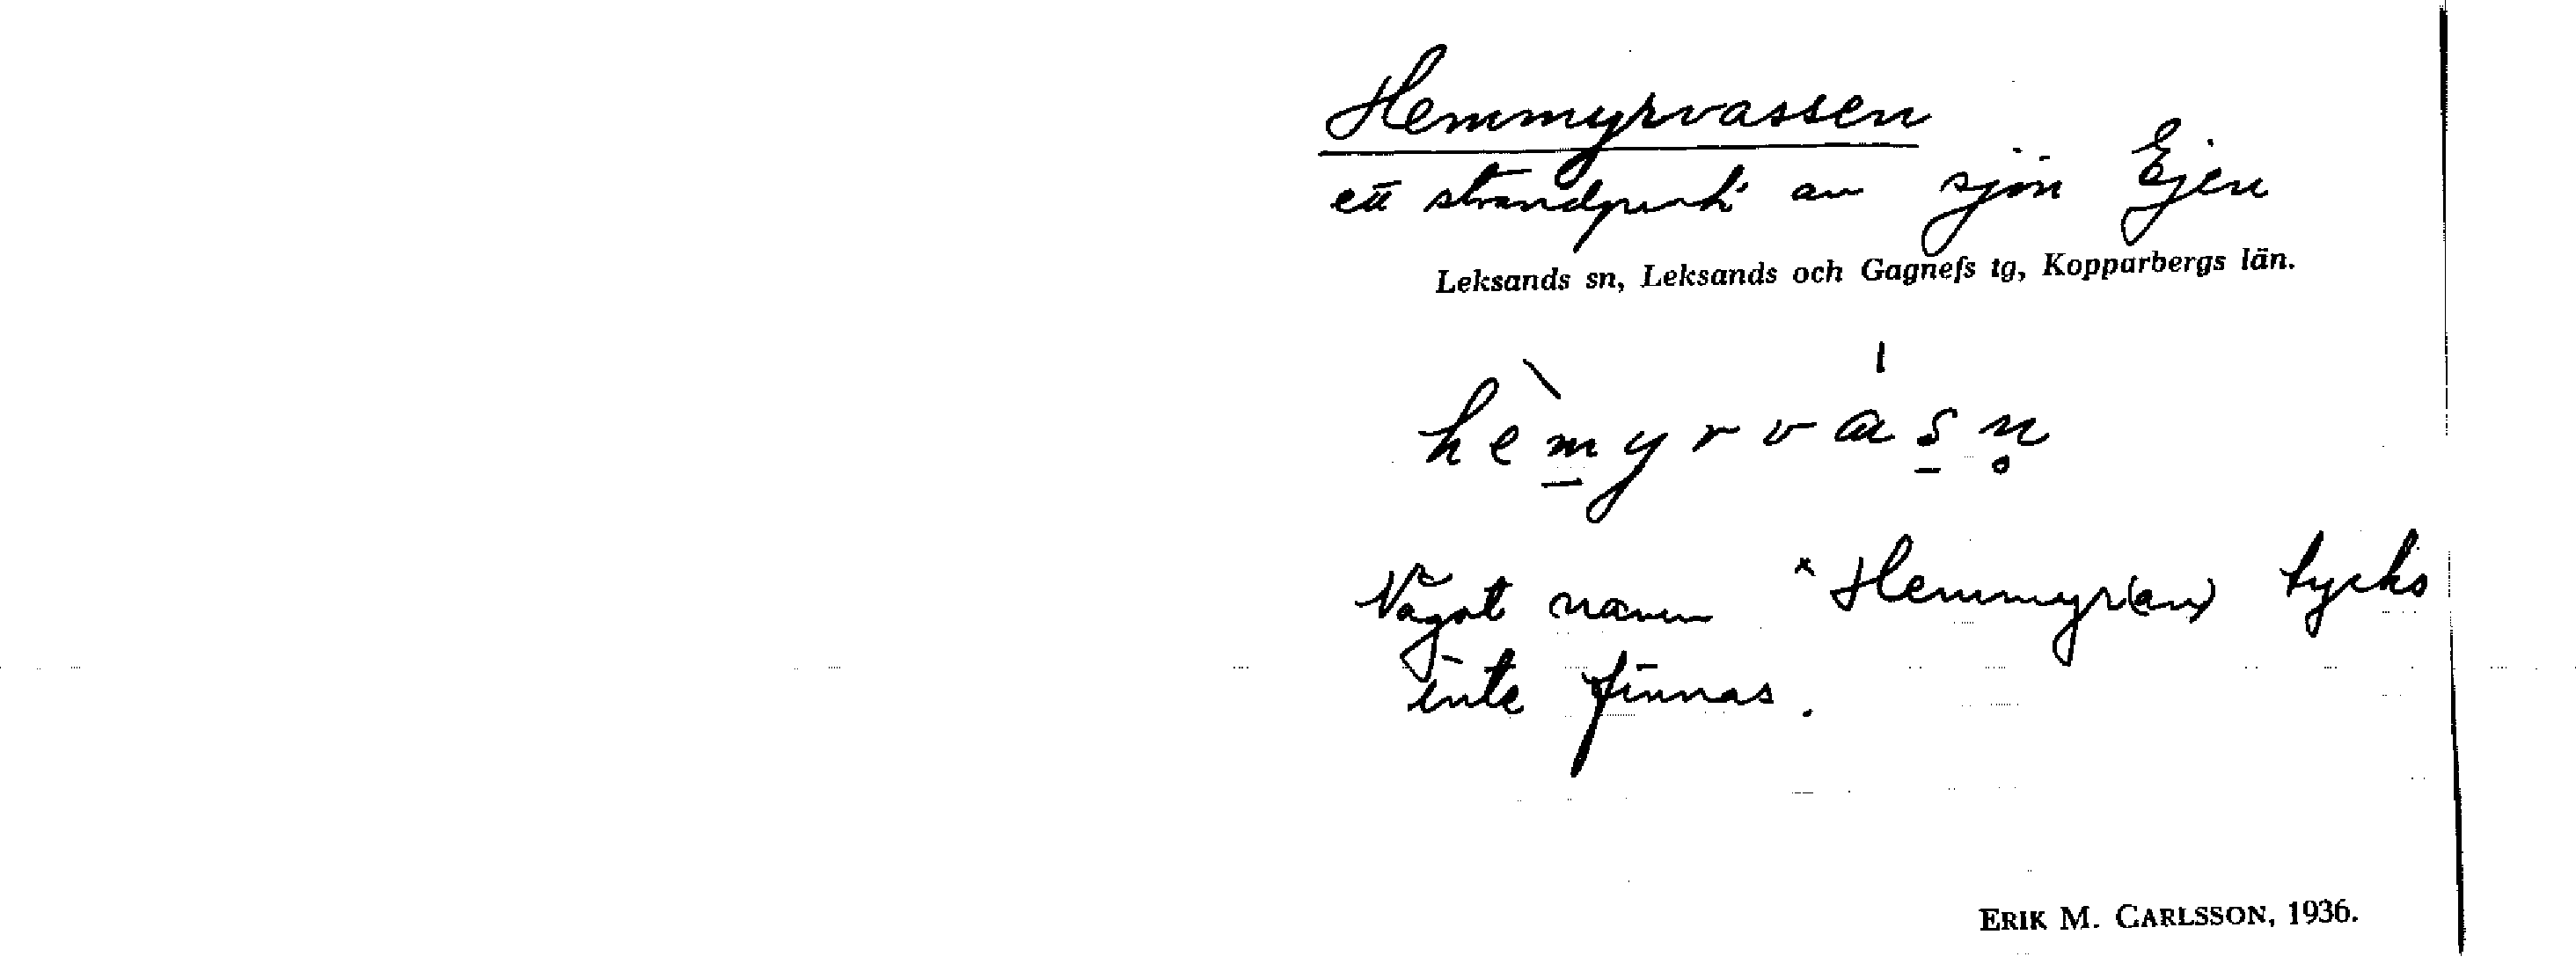 Hemmyrvassen
ett strandparti av sjön Ejen
Leksands sn, Leksands och Gagnefs tg, Kopparbergs län.
hèmyrvásn̥
Något namn *Hemmyr(an) tycks
inte finnas.
ERIK M. CARLSSON, 1936.